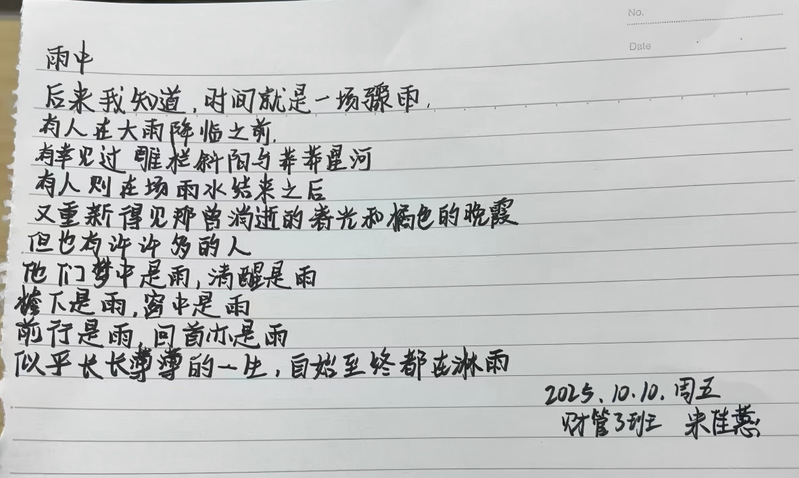 No.
Date
雨中
后来我知道,时间就是一场骤雨,
有人在大雨降临之前,
有幸见过雕栏斜阳与莽莽星河
有人则在场雨水结束之后
又重新得见那曾淌逝的春光和橘色的晚霞
但也有许许多的人
他们梦中是雨,清醒是雨
檐下是雨,窗中是雨
前行是雨,回首亦是雨
似乎长长 的一生,自始至终都在淋雨
2025.10.10.周五
财管3班 佳蕙